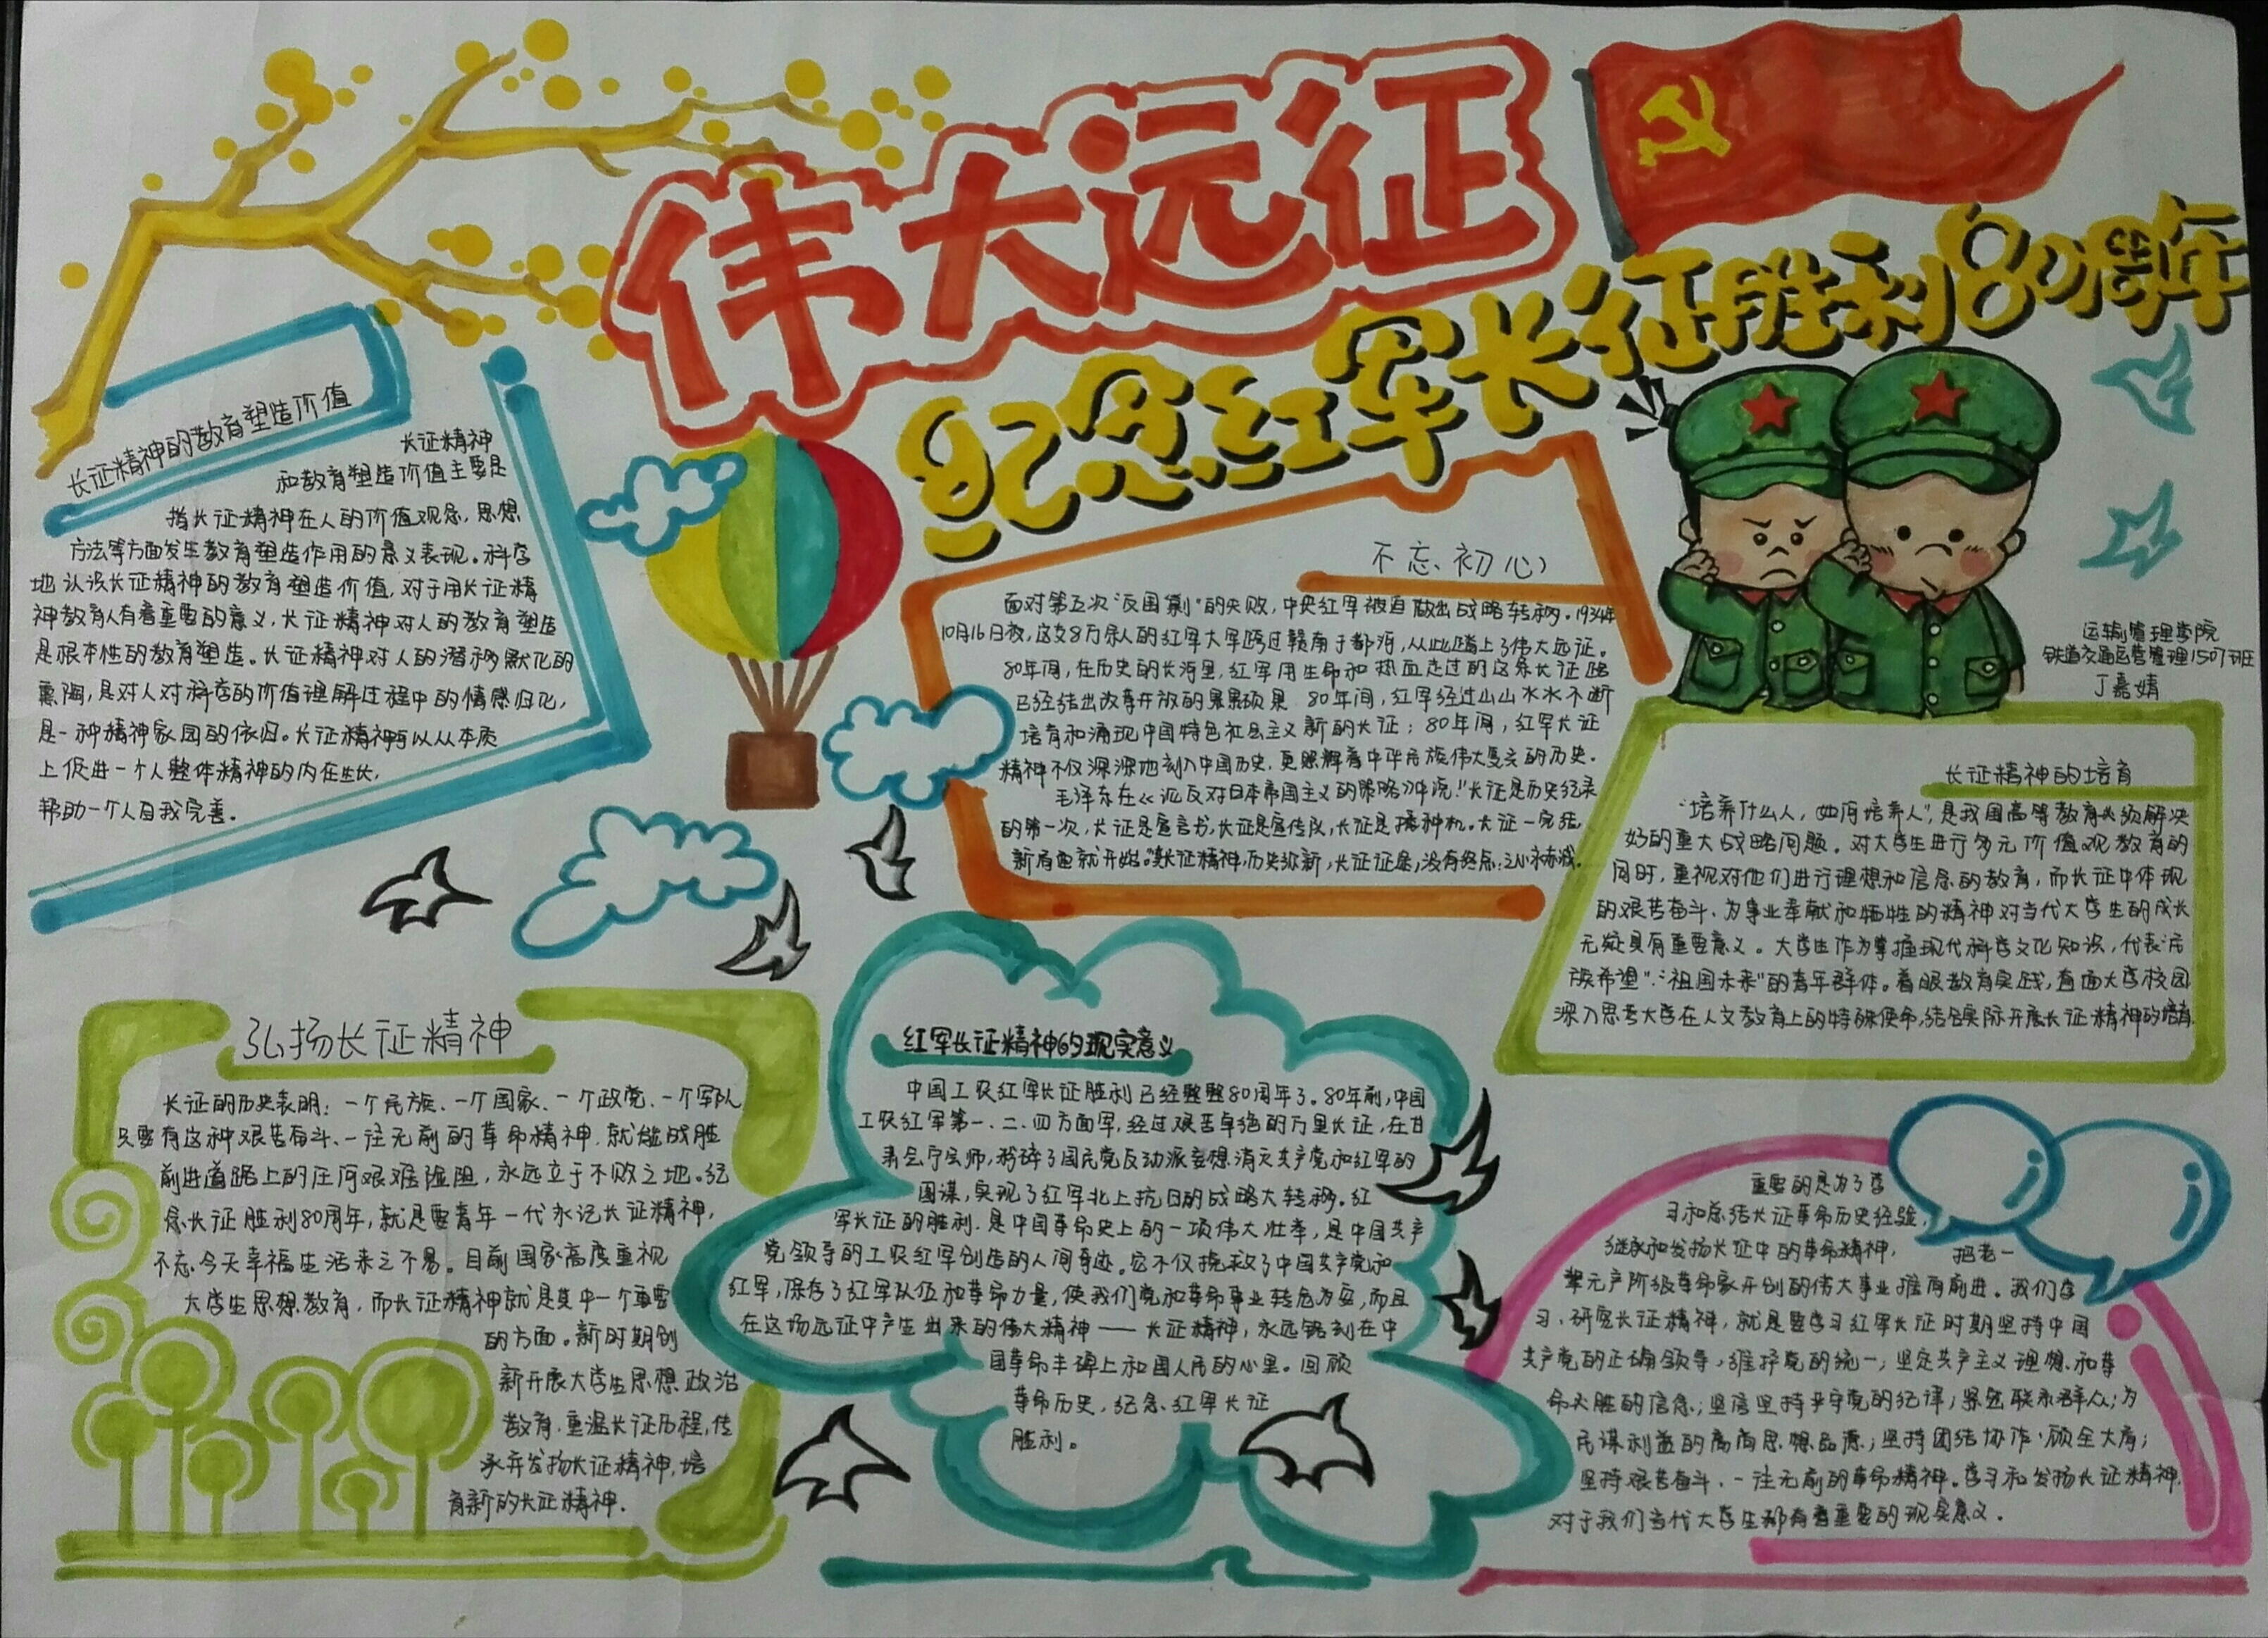 伟大远征
纪念红军长征胜利80周年
长征精神的教育塑造价值
长征精神
和教育塑造价值主要是
指长征精神在人的价值观念,思想
方法等方面发生教育塑造作用的意义表现。科学
地认识长征精神的教育塑造价值,对于用长征精
神教育人有着重要的意义,长征精神对人的教育塑造
是根本性的教育塑造。长征精神对人的潜移默化的
熏陶,是对人对科学的价值理解过程中的情感归化,
是一种精神家园的依归。长征精神可以从本质
上促进一个人整体精神的内在生长,
帮助一个人自我完善。
不忘初心
面对第五次“反围剿”的失败,中央红军被迫做出战略转移。1934年
10月16日夜,这支8万余人的红军大军跨过赣南于都河,从此踏上了伟大远征。
80年间,在历史的长河里,红军用生命和热血走过的这条长征路
已经结出改革开放的累累硕果 80年间,红军经过山山水水不断
培育和涌现中国特色社会主义新的长征;80年间,红军长征
精神不仅深深地刻入中国历史,更照辉着中华民族伟大复兴的历史。
毛泽东在《论反对日本帝国主义的策略》中说:“长征是历史纪录
的第一次,长征是宣言书,长征是宣传队,长征是播种机。长征一完结,
新局面就开始。”长征精神,历史弥新,长征征途,没有终点:
运输管理学院
铁道交通运营管理1507班
丁嘉婧
长征精神的培育
“培养什么人,如何培养人”,是我国高等教育必须解决
好的重大战略问题。对大学生进行多元价值观教育的
同时,重视对他们进行理想和信念的教育,而长征中体现
的艰苦奋斗、为事业奉献和牺牲的精神对当代大学生的成长
无疑具有重要意义。大学生作为掌握现代科学文化知识,代表“民
族希望”“祖国未来”的青年群体。着眼教育实践,直面大学校园
深入思考大学在人文教育上的特殊使命,结合实际开展长征精神的培育.
弘扬长征精神
长征的历史表明:一个民族、一个国家、一个政党、一个军队
只要有这种艰苦奋斗、一往无前的革命精神,就能战胜
前进道路上的任何艰难险阻,永远立于不败之地。纪
念长征胜利80周年,就是要青年一代永记长征精神,
不忘今天幸福生活来之不易。目前国家高度重视
大学生思想教育,而长征精神就是其中一个重要
的方面。新时期创
新开展大学生思想政治
教育,重温长征历程,传
承并发扬长征精神,培
育新的长征精神.
红军长征精神的现实意义
中国工农红军长征胜利已经整整80周年了。80年前,中国
工农红军第一、二、四方面军,经过艰苦卓绝的万里长征,在甘
肃会宁会师,粉碎了国民党反动派妄想消灭共产党和红军的
图谋,实现了红军北上抗日的战略大转移。红
军长征的胜利,是中国革命史上的一项伟大壮举,是中国共产
党领导的工农红军创造的人间奇迹。它不仅挽救了中国共产党和
红军,保存了红军队伍和革命力量,使我们党和革命事业转危为安,而且
在这场远征中产生出来的伟大精神——长征精神,永远铭刻在中
国革命丰碑上和国人民的心里。回顾
革命历史,纪念红军长征
胜利。
重要的是为了学
习和总结长征革命历史经验,
继承和发扬长征中的革命精神, 把老一
辈无产阶级革命家开创的伟大事业推向前进。我们学
习、研究长征精神,就是要学习红军长征时期坚持中国
共产党的正确领导,维护党的统一;坚定共产主义理想和革
命必胜的信念;坚信坚持严守党的纪律;紧密联系群众;为
民谋利益的高尚思想品德;坚持团结协作、顾全大局;
坚持艰苦奋斗、一往无前的革命精神。学习和发扬长征精神,
对于我们当代大学生都有着重要的现实意义.